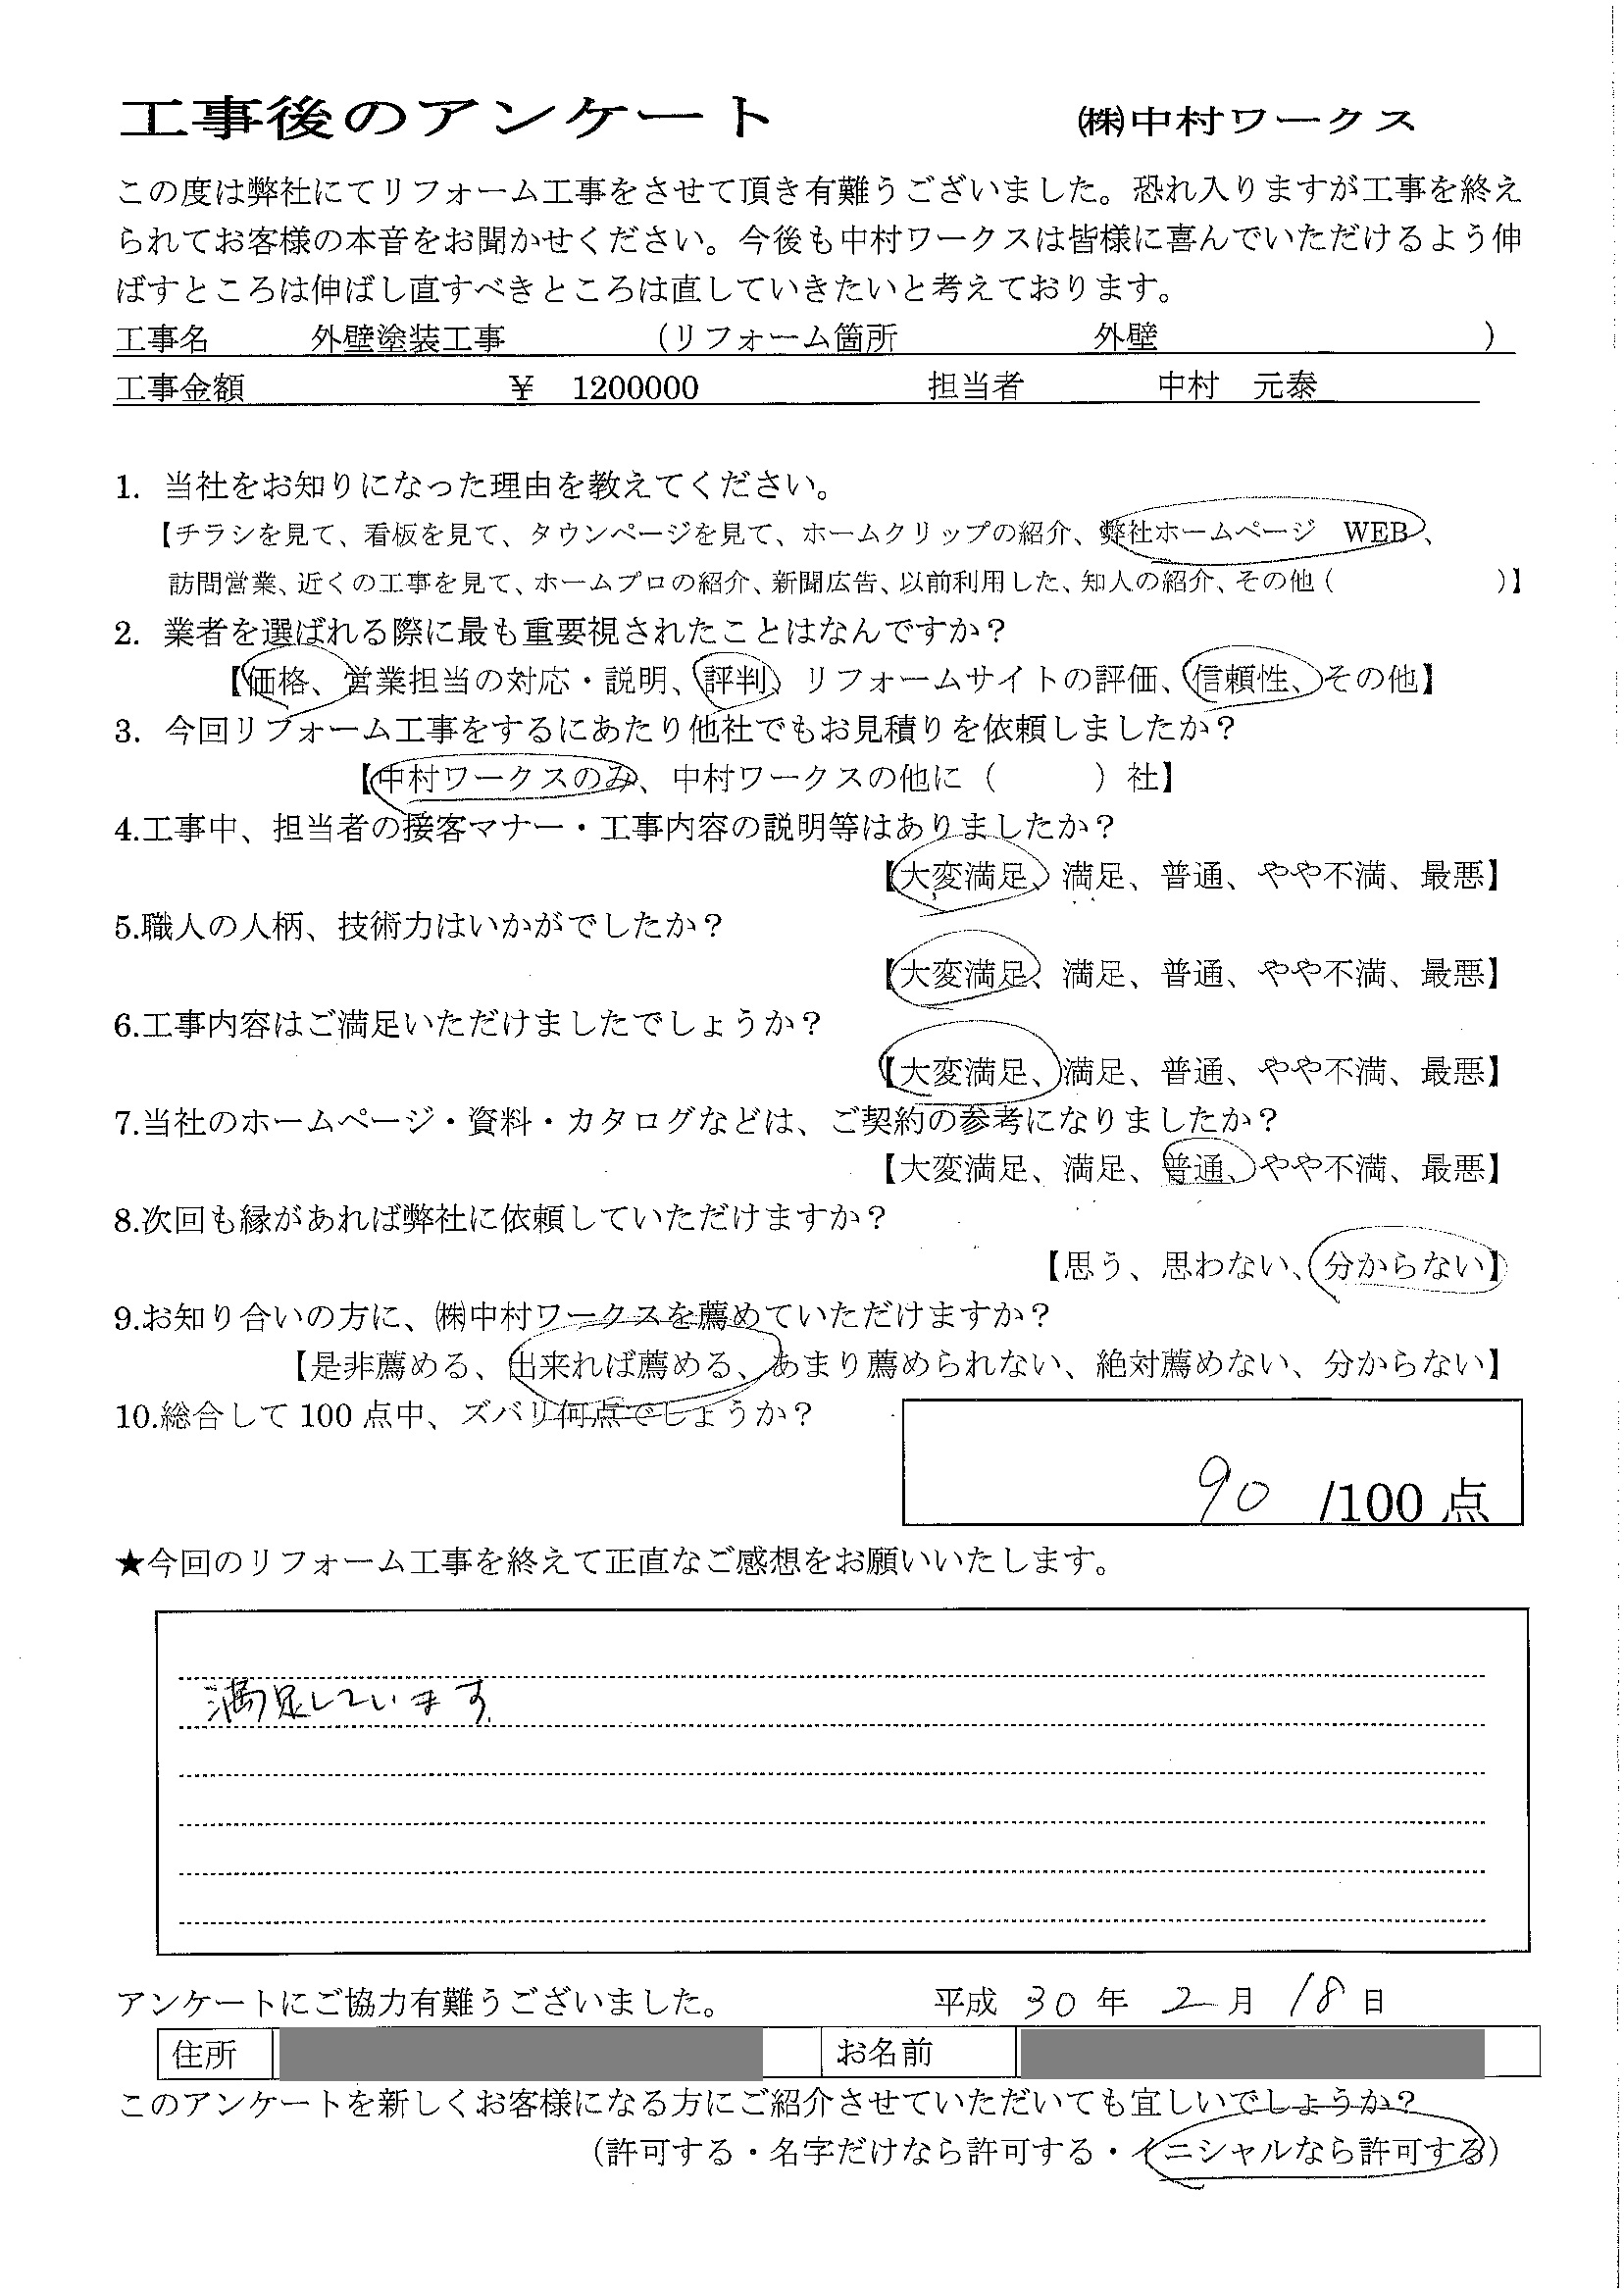 工事後のアンケート ㈱中村ワークス
この度は弊社にてリフォーム工事をさせて頂き有難うございました。恐れ入りますが工事を終え
られてお客様の本音をお聞かせください。今後も中村ワークスは皆様に喜んでいただけるよう伸
ばすところは伸ばし直すべきところは直していきたいと考えております。
工事名 外壁塗装工事 （リフォーム箇所 外壁 ）
工事金額 ￥ 1200000 担当者 中村 元泰
1. 当社をお知りになった理由を教えてください。
【チラシを見て、看板を見て、タウンページを見て、ホームクリップの紹介、弊社ホームページ WEB、
訪問営業、近くの工事を見て、ホームプロの紹介、新聞広告、以前利用した、知人の紹介、その他（ ）】
2. 業者を選ばれる際に最も重要視されたことはなんですか？
【価格、営業担当の対応・説明、評判、リフォームサイトの評価、信頼性、その他】
3. 今回リフォーム工事をするにあたり他社でもお見積りを依頼しましたか？
【中村ワークスのみ、中村ワークスの他に（ ）社】
4.工事中、担当者の接客マナー・工事内容の説明等はありましたか？
【大変満足、満足、普通、やや不満、最悪】
5.職人の人柄、技術力はいかがでしたか？
【大変満足、満足、普通、やや不満、最悪】
6.工事内容はご満足いただけましたでしょうか？
【大変満足、満足、普通、やや不満、最悪】
7.当社のホームページ・資料・カタログなどは、ご契約の参考になりましたか？
【大変満足、満足、普通、やや不満、最悪】
8.次回も縁があれば弊社に依頼していただけますか？
【思う、思わない、分からない】
9.お知り合いの方に、㈱中村ワークスを薦めていただけますか？
【是非薦める、出来れば薦める、あまり薦められない、絶対薦めない、分からない】
10.総合して 100 点中、ズバリ何点でしょうか？
90 /100 点
★今回のリフォーム工事を終えて正直なご感想をお願いいたします。
満足しています。
アンケートにご協力有難うございました。 平成 30 年 2 月 18 日
住所 お名前
このアンケートを新しくお客様になる方にご紹介させていただいても宜しいでしょうか？
（許可する・名字だけなら許可する・イニシャルなら許可する）